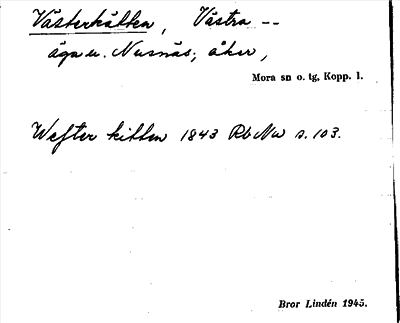 Västerkätten, Västra --
äga u. Nusnäs; åker,
Mora sn o. tg, Kopp. l.
Wester kitten 1843 Rb Nw s. 103.
Bror Lindén 1945.